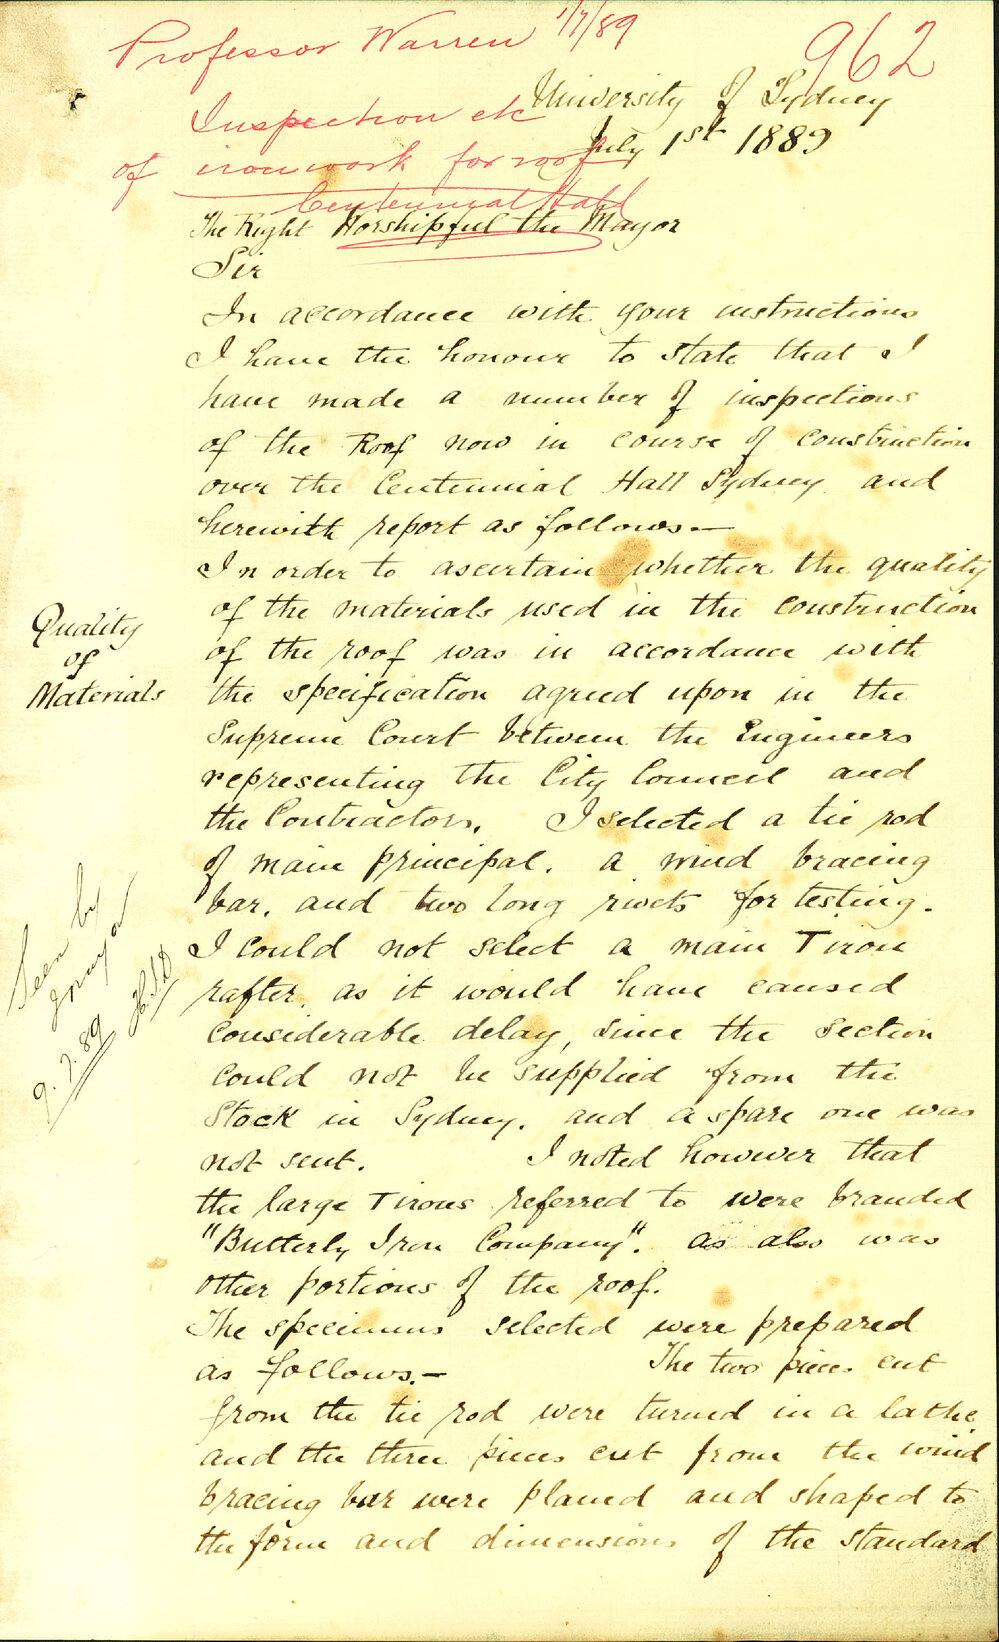 Professor Warren 1/7/89
962
Inspection etc
of ironwork for roof
Centennial Hall
University of Sydney
July 1st 1889
The Right Worshipful the Mayor
Sir
In accordance with your instructions
I have the honour to state that I
have made a number of inspections
of the Roof now in course of construction
over the Centennial Hall Sydney and
herewith report as follows.—
Quality
of
Materials
In order to ascertain whether the quality
of the materials used in the construction
of the roof was in accordance with
the specification agreed upon in the
Supreme Court between the Engineers
representing the City Council and
the Contractors. I selected a tie rod
of main principal. a wind bracing
bar. and two long rivets for testing.
I could not select a main T iron
rafter, as it would have caused
considerable delay, since the section
could not be supplied from the
Stock in Sydney. and a spare one was
not sent. I noted however that
the large T irons referred to were branded
"Butterly Iron Company". as also was
other portions of the roof.
The specimens selected were prepared
as follows.— The two pieces cut
from the tie rod were turned in a lathe
and the three pieces cut from the wind
bracing bar were planed and shaped to
the form and dimensions of the standard
Seen by
mayor
9.7.89